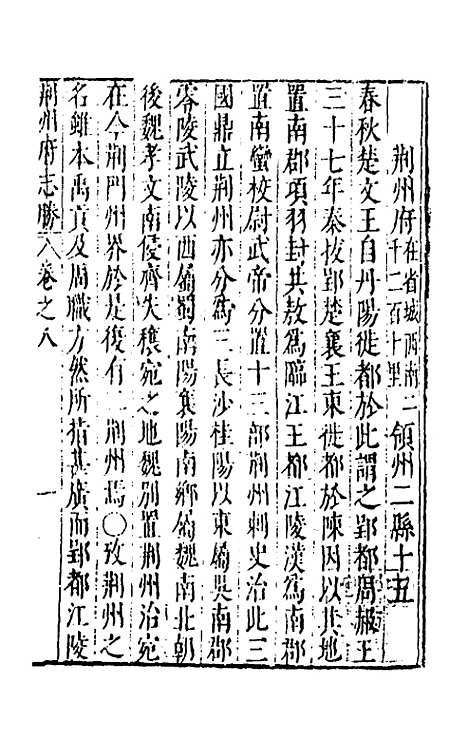 荆州府在省城西南二千二百十里領州二縣十五
春秋楚文王自丹陽徙都於此謂之郢都周赧王
三十七年秦拔郢楚襄王東徙都於陳因以其地
置南郡項羽封共敖爲臨江王都江陵漢爲南郡
置南蠻校尉武帝分置十三部荆州刺史治此三
國鼎立荆州亦分爲三長沙桂陽以東屬吳南郡
零陵武陵以西屬蜀南陽襄陽南鄉屬魏南北朝
後魏孝文南侵齊失穰宛之地魏別置荆州治宛
在今荆門州界於是復有二荆州焉○攷荆州之
名雖本禹貢及周職方然所指甚廣而郢都江陵
荆州府志勝 卷之八 一